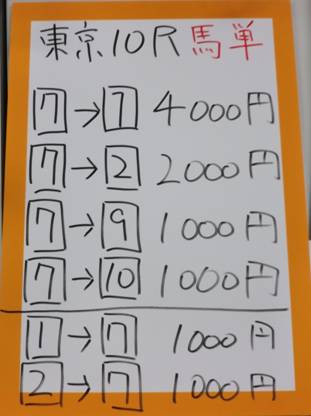 東京10R 馬単
7→1 4000円
7→2 2000円
7→9 1000円
7→10 1000円
1→7 1000円
2→7 1000円